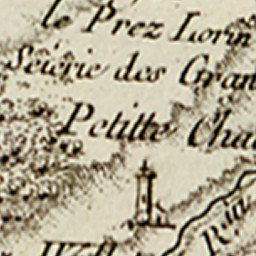 le Prez Lorin
Scierie des Gran
Petitte Cha